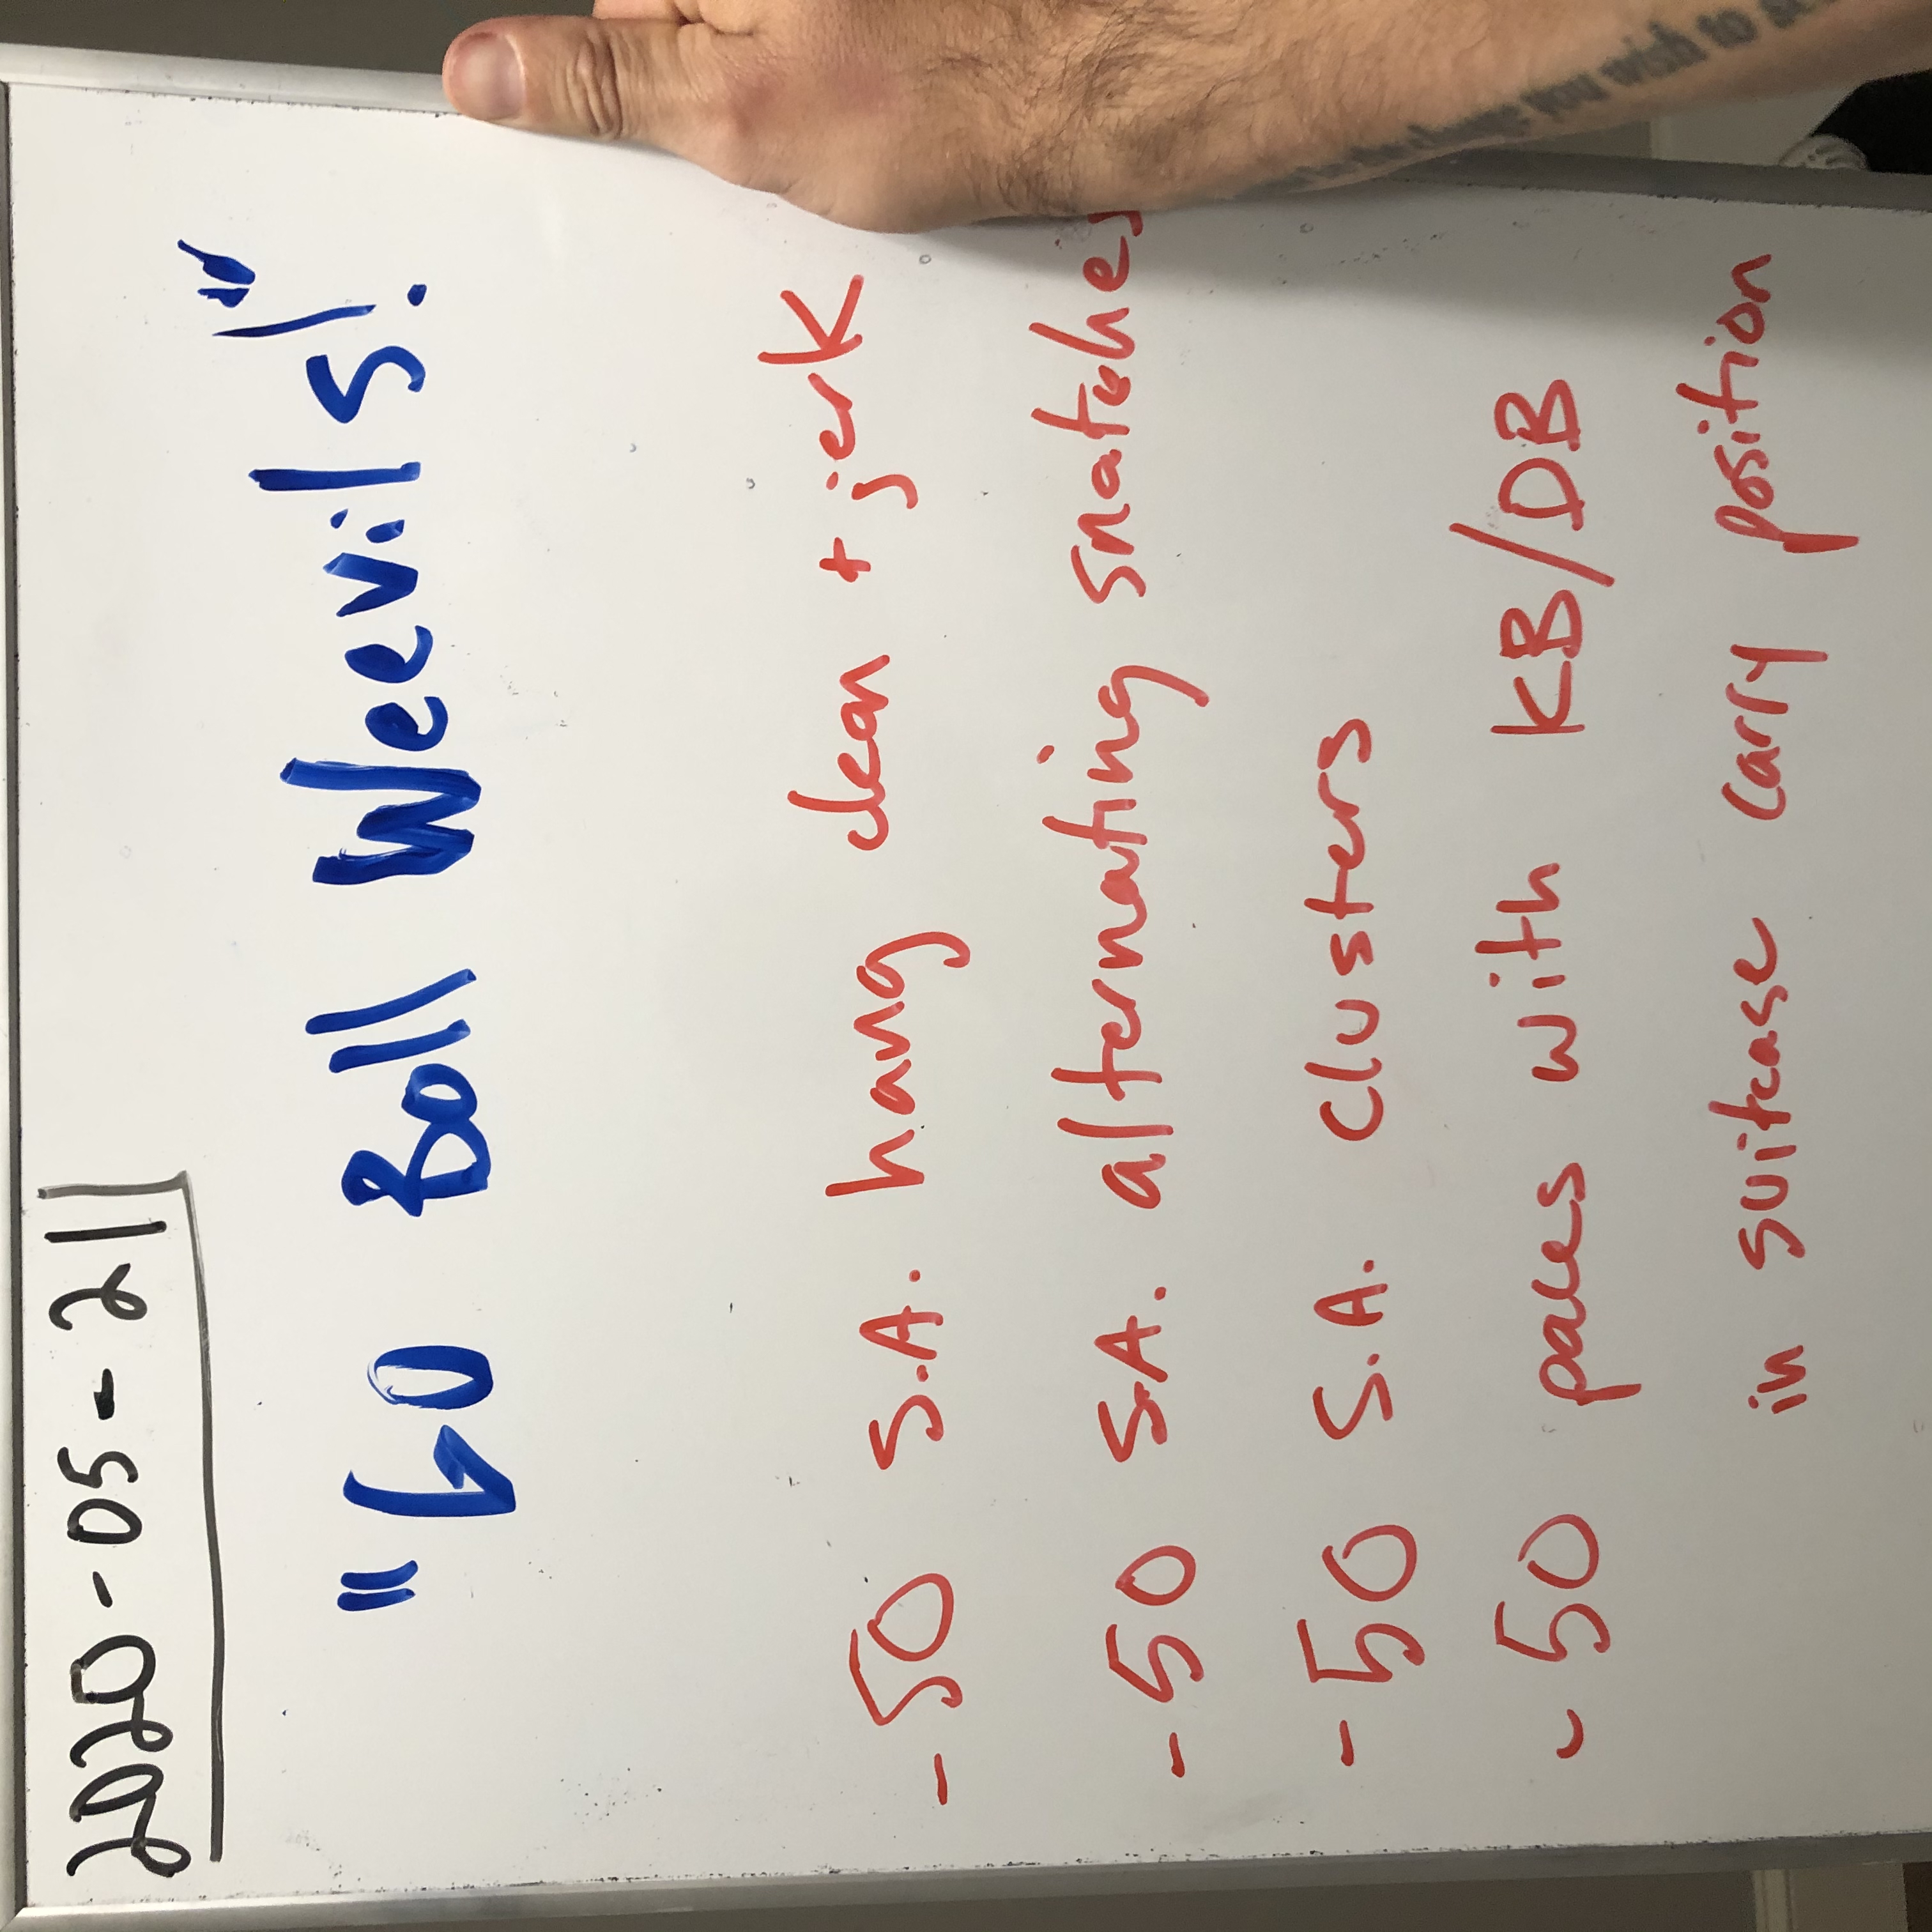 2020-05-21
"GO Boll Weevils!"
-50 S.A. hang clean + jerk
-50 S.A. alternating snatches
-50 S.A. clusters
-50 paces with KB/DB
in suitcase carry position
you wish to